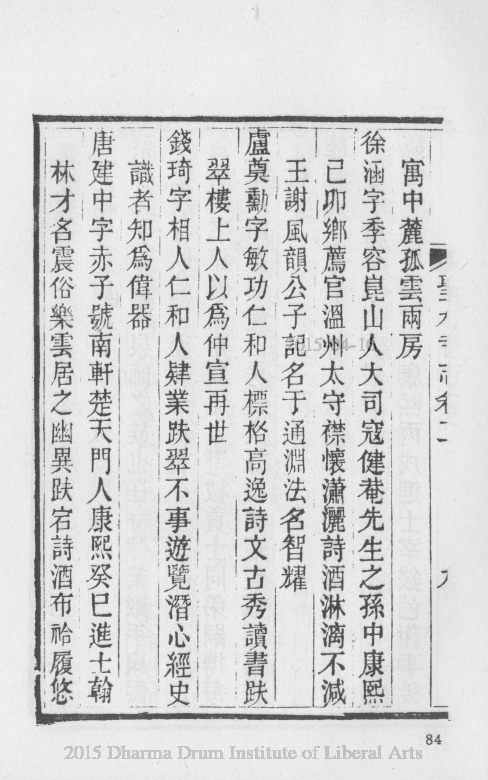 寓中麓孤雲兩房
徐涵字季容崑山人大司寇健菴先生之孫中康熙
己卯鄉薦官溫州太守襟懷瀟灑詩酒淋漓不減
王謝風韻公子記名于通淵法名智耀
盧奠勳字敏功仁和人標格高逸詩文古秀讀書趺
翠樓上人以爲仲宣再世
錢琦字相人仁和人肄業趺翠不事遊覽潛心經史
識者知爲偉器
唐建中字赤子號南軒楚天門人康熙癸巳進士翰
林才名震俗樂雲居之幽異趺宕詩酒布袷履悠
84
2015 Dharma Drum Institute of Liberal Arts